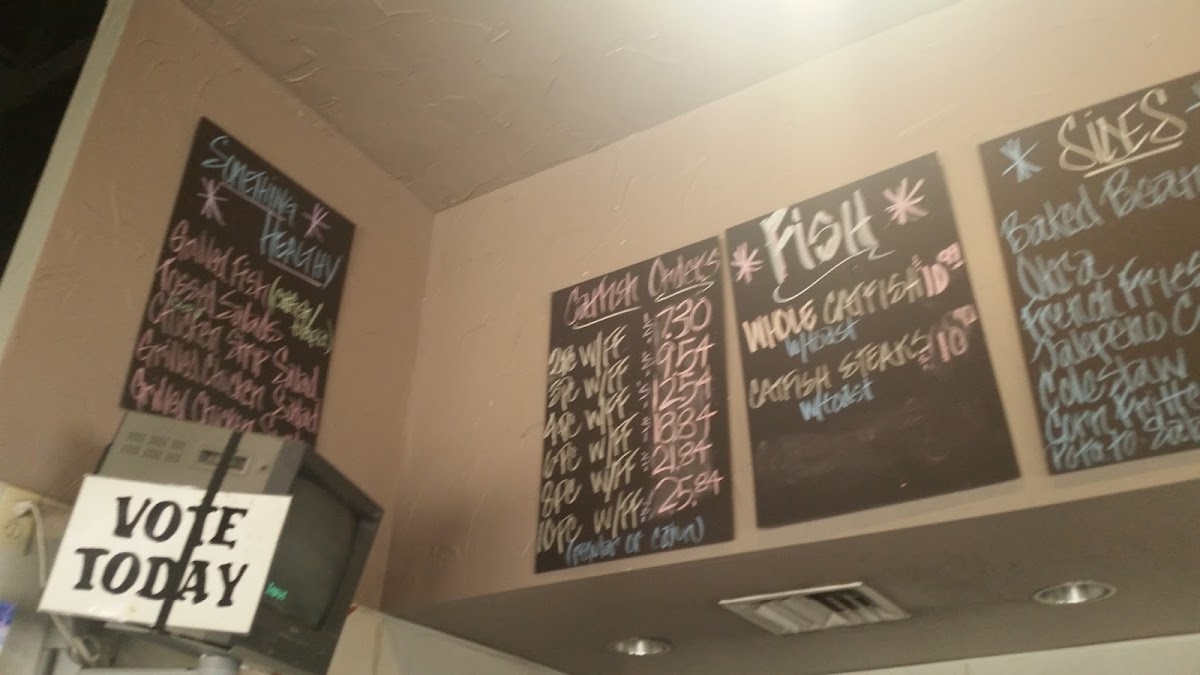 SOMETHING
HEALTHY
Grilled Fish
Tossed Salads
Chicken Strip Salad
Grilled Chicken Salad
Grilled Chicken
VOTE
TODAY
Catfish Orders
2pc w/FF 7.30
3pc w/FF 9.54
4pc w/FF 12.54
6pc w/FF 18.84
8pc w/FF 21.84
10pc w/FF 25.84
(regular or cajun)
FISH
WHOLE CATFISH $10.99
w/toast
CATFISH STEAKS
w/toast
SIDES
Baked Bean
Okra
French Fries
Jalapeno C
Coleslaw
Corn Fritte
Potato Sala